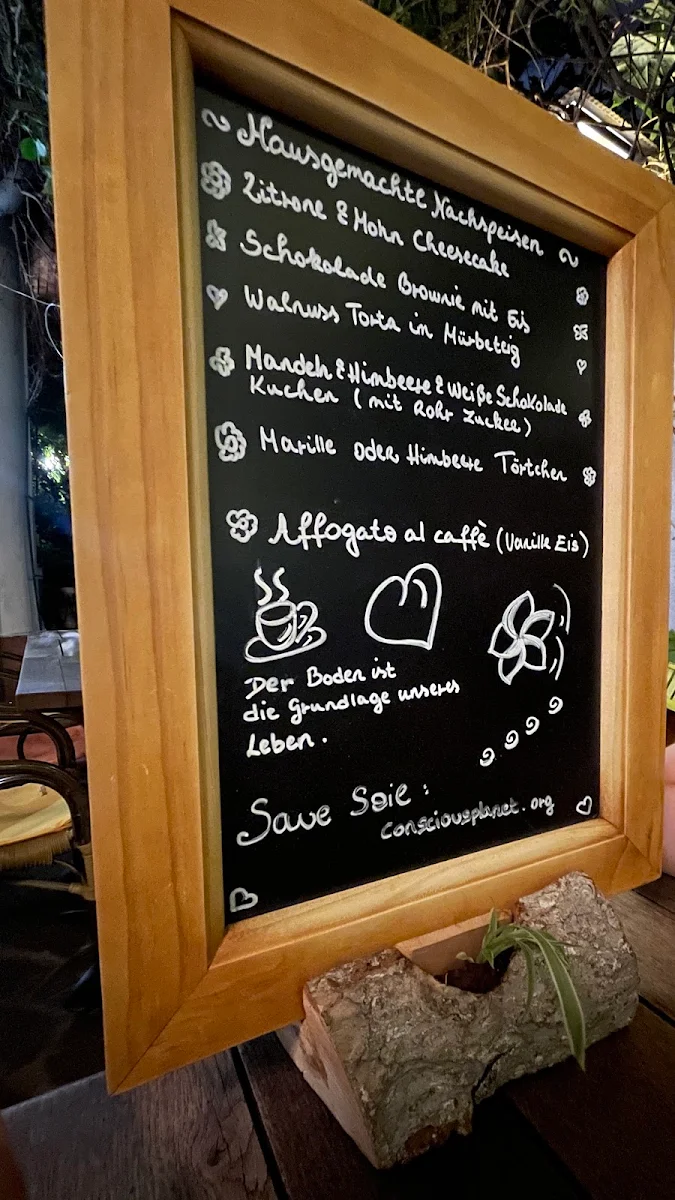 ~ Hausgemachte Nachspeisen ~
Zitrone & Mohn Cheesecake
Schokolade Brownie mit Eis
Walnuss Torta im Mürbeteig
Mandeln & Himbeere & Weiße Schokolade
Kuchen (mit Rohr Zucker)
Marille oder Himbeere Törtchen
Affogato al caffè (Vanille Eis)
Der Boden ist
die Grundlage unseres
Leben.
Save Soil:
consciousplanet.org